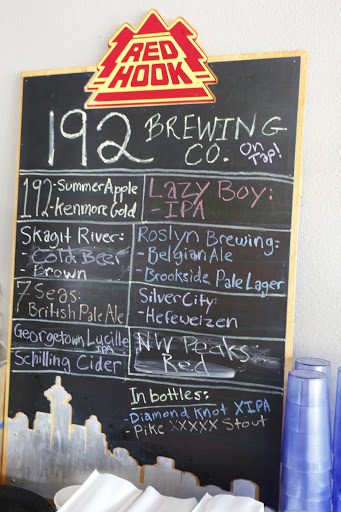 RED
HOOK
192 BREWING
CO. on Tap!
192 - Summer Apple
- Kenmore Gold
Lazy Boy:
- IPA
Skagit River:
- Cold Beer
- Brown
Roslyn Brewing:
- Belgian Ale
- Brookside Pale Lager
7 Seas:
British Pale Ale
Silver City:
- Hefeweizen
Georgetown Lucille
IPA
Schilling Cider
NW Peaks:
Red
In bottles:
- Diamond Knot XIPA
- Pike XXXXX Stout